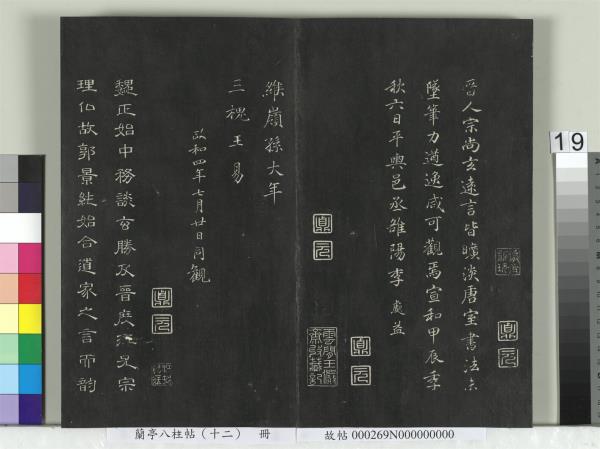 晉人宗尚玄遠言皆曠淡唐室書法未
墜筆力遒逸咸可觀焉宣和甲辰季
秋六日平輿邑丞雒陽李處益
維嶺孫大年
三槐王易
政和四年七月廿日同觀
魏正始中務談玄勝及晉度江尤宗
理仏故郭景純始合道家之言而韵
鼎元
鼎元
鼎元
鼎元
蘭亭八柱帖(十二) 冊
故帖 000269N000000000
19